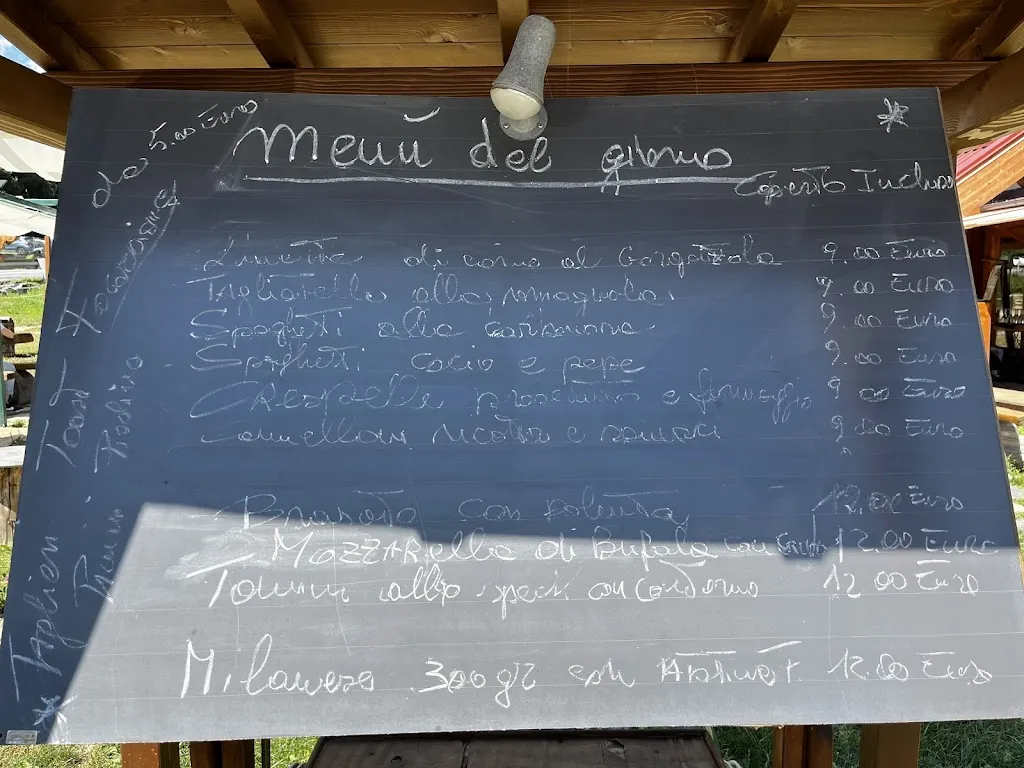 Menù del giorno
Coperto Incluso
di cervo al Gorgonzola 9.00 Euro
Tagliatelle alla 9.00 Euro
Spaghetti alla carbonara 9.00 Euro
Spaghetti cacio e pepe 9.00 Euro
Crespelle prosciutto e formaggio 9.00 Euro
ricotta e spinaci 9.00 Euro
Brasato con polenta 12.00 Euro
Mozzarella di Bufala con 12.00 Euro
alla speck con contorno 12.00 Euro
Milanese 300gr con 12.00 Euro
Taglieri Toast Focaccine
da 5.00 Euro